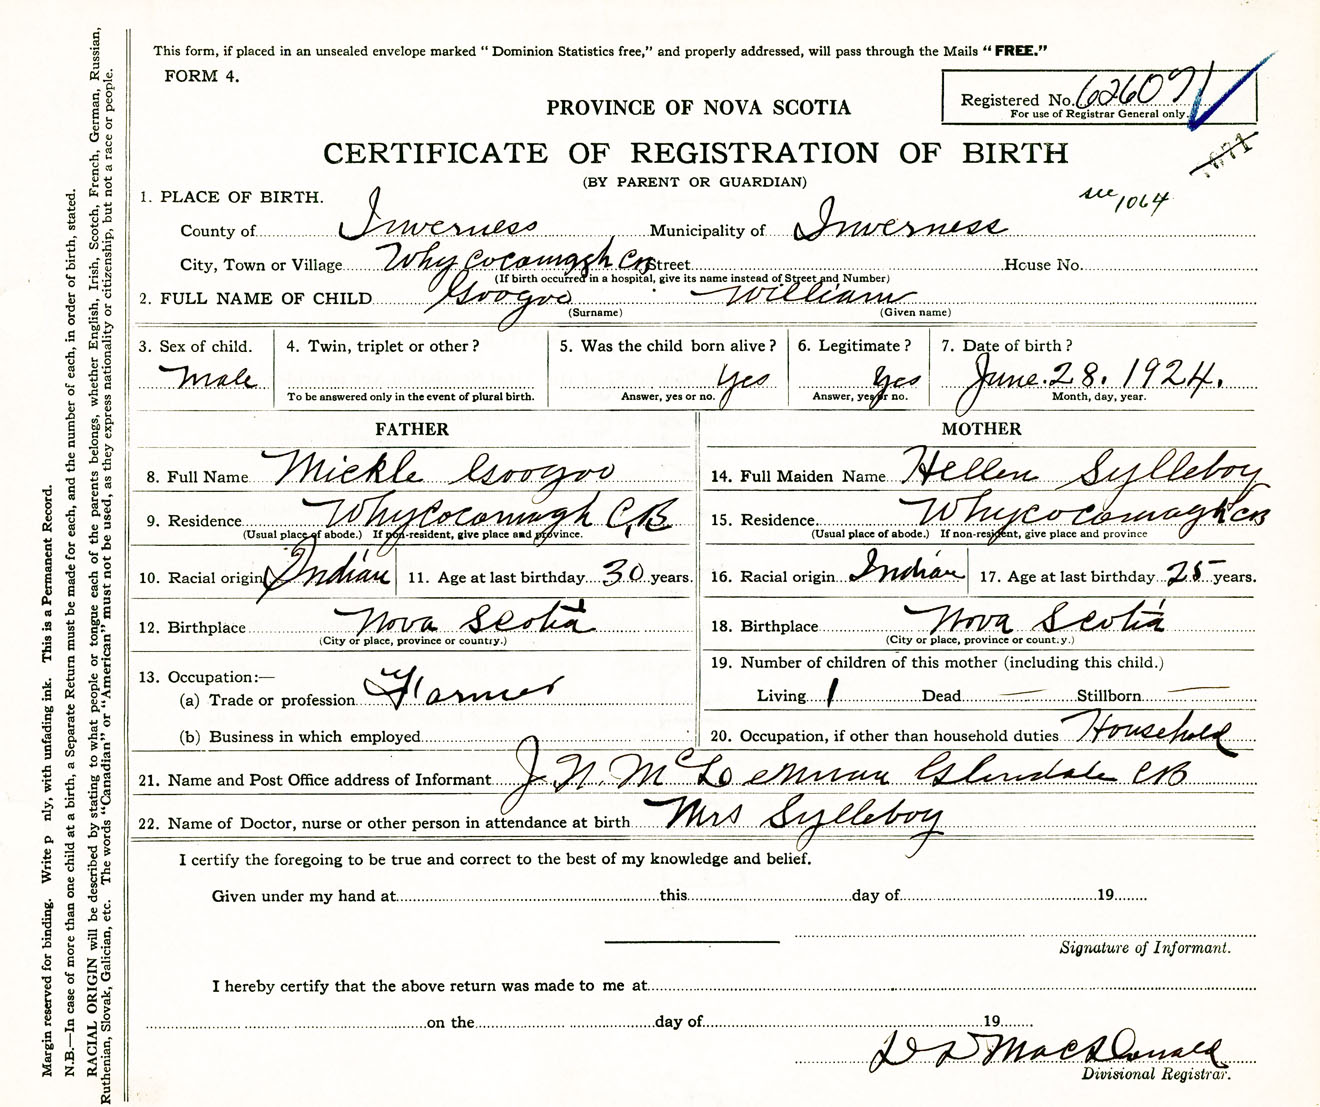 This form, if placed in an unsealed envelope marked “ Dominion Statistics free,” and properly addressed, will pass through the Mails “ FREE.”
FORM 4.
Registered No. 626071
For use of Registrar General only.
PROVINCE OF NOVA SCOTIA
1071
CERTIFICATE OF REGISTRATION OF BIRTH
(BY PARENT OR GUARDIAN)
see 1064
1. PLACE OF BIRTH.
County of Inverness Municipality of Inverness
City, Town or Village Whycocomagh CB Street House No.
(If birth occurred in a hospital, give its name instead of Street and Number)
2. FULL NAME OF CHILD Googoo William
(Surname) (Given name)
3. Sex of child. 4. Twin, triplet or other ? 5. Was the child born alive ? 6. Legitimate ? 7. Date of birth ?
Male Yes Yes June. 28. 1924.
To be answered only in the event of plural birth. Answer, yes or no. Answer, yes or no. Month, day, year.
FATHER MOTHER
8. Full Name Mickle Googoo 14. Full Maiden Name Hellen Sylleboy
9. Residence Whycocomagh C,B 15. Residence Whycocomagh CB
(Usual place of abode.) If non-resident, give place and province. (Usual place of abode.) If non-resident, give place and province
10. Racial origin Indian 11. Age at last birthday 30 years. 16. Racial origin Indian 17. Age at last birthday 25 years.
12. Birthplace Nova Scotia 18. Birthplace Nova Scotia
(City or place, province or country.) (City or place, province or county.)
13. Occupation:— 19. Number of children of this mother (including this child.)
(a) Trade or profession Farmer Living 1 Dead — Stillborn —
(b) Business in which employed 20. Occupation, if other than household duties Household
21. Name and Post Office address of Informant J N Glendale CB
22. Name of Doctor, nurse or other person in attendance at birth Mrs Sylleboy
I certify the foregoing to be true and correct to the best of my knowledge and belief.
Given under my hand at this day of 19
Signature of Informant.
I hereby certify that the above return was made to me at
on the day of 19
D D MacDonald
Divisional Registrar.
Margin reserved for binding. Write p nly, with unfading ink. This is a Permanent Record.
N.B.—In case of more than one child at a birth, a Separate Return must be made for each, and the number of each, in order of birth, stated.
RACIAL ORIGIN will be described by stating to what people or tongue each of the parents belongs, whether English, Irish, Scotch, French, German, Russian,
Ruthenian, Slovak, Galician, etc. The words “Canadian” or “American” must not be used, as they express nationality or citizenship, but not a race or people.